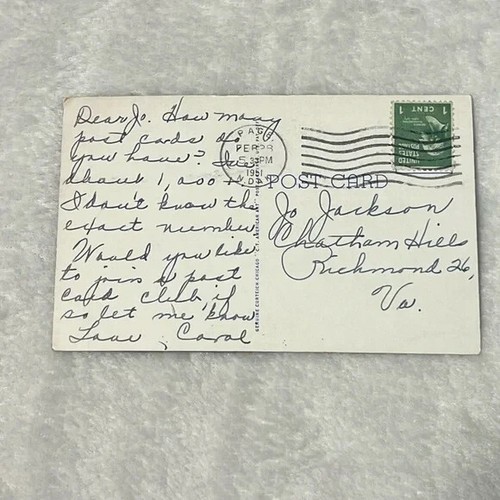 Dear Jo. How many
post cards do
you have? I've
about 1,000 +
I don't know the
exact number
Would you like
to join a post
card club, if
so let me know
Love, Carol
PAGE
FEB 28
5 PM
1951
N.DAK.
1 CENT 1
UNITED
STATES
POSTAGE
POST CARD
Jo Jackson
Chatham Hills
Richmond 26,
Va.
GENUINE CURTEICH-CHICAGO